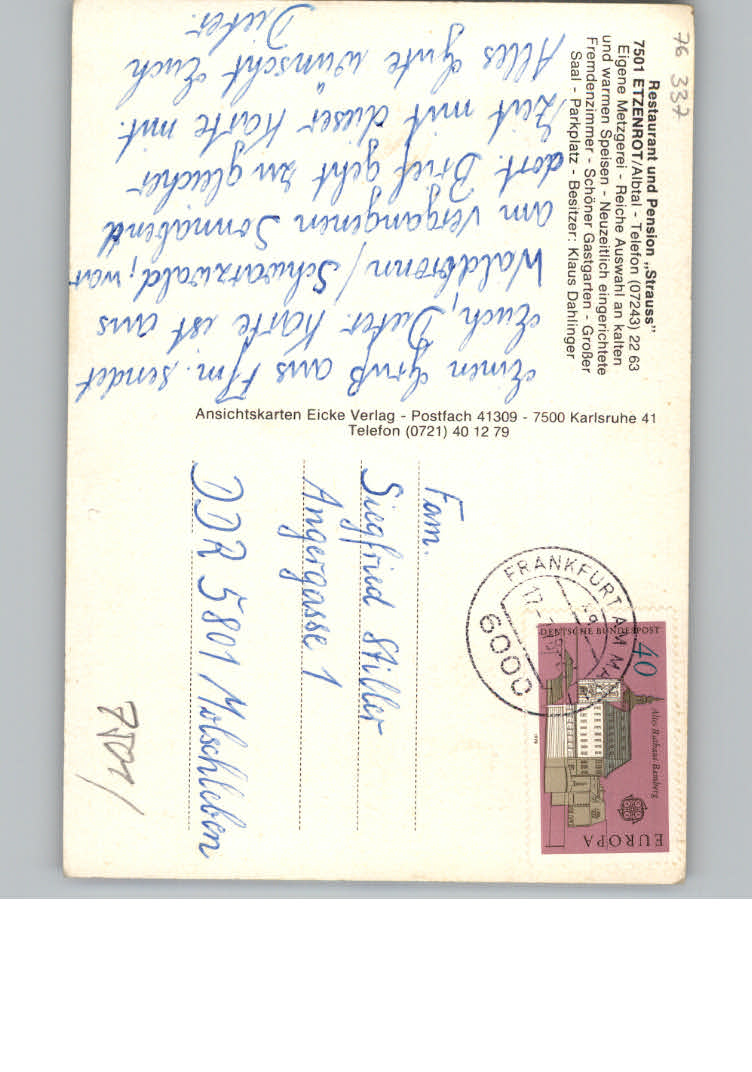 Restaurant und Pension „Strauss”
7501 ETZENROT/Albtal - Telefon (07243) 22 63
Eigene Metzgerei - Reiche Auswahl an kalten
und warmen Speisen - Neuzeitlich eingerichtete
Fremdenzimmer - Schöner Gastgarten - Großer
Saal - Parkplatz - Besitzer: Klaus Dahlinger
76 337
Einen Gruß aus Ffm. sendet
Euch, Dieter. Karte ist aus
Waldbronn / Schwarzwald; war
am vergangenen Sonnabend
dort. Brief geht zu gleicher
Zeit mit dieser Karte mit.
Alles Gute wünscht Euch
Dieter.
Ansichtskarten Eicke Verlag - Postfach 41309 - 7500 Karlsruhe 41
Telefon (0721) 40 12 79
Fam.
Siegfried Stiller
Angergasse 1
DDR 5801 Molschleben
7501/
FRANKFURT AM
6000
DEUTSCHE BUNDESPOST
40
Altes Rathaus Bamberg
EUROPA
1978